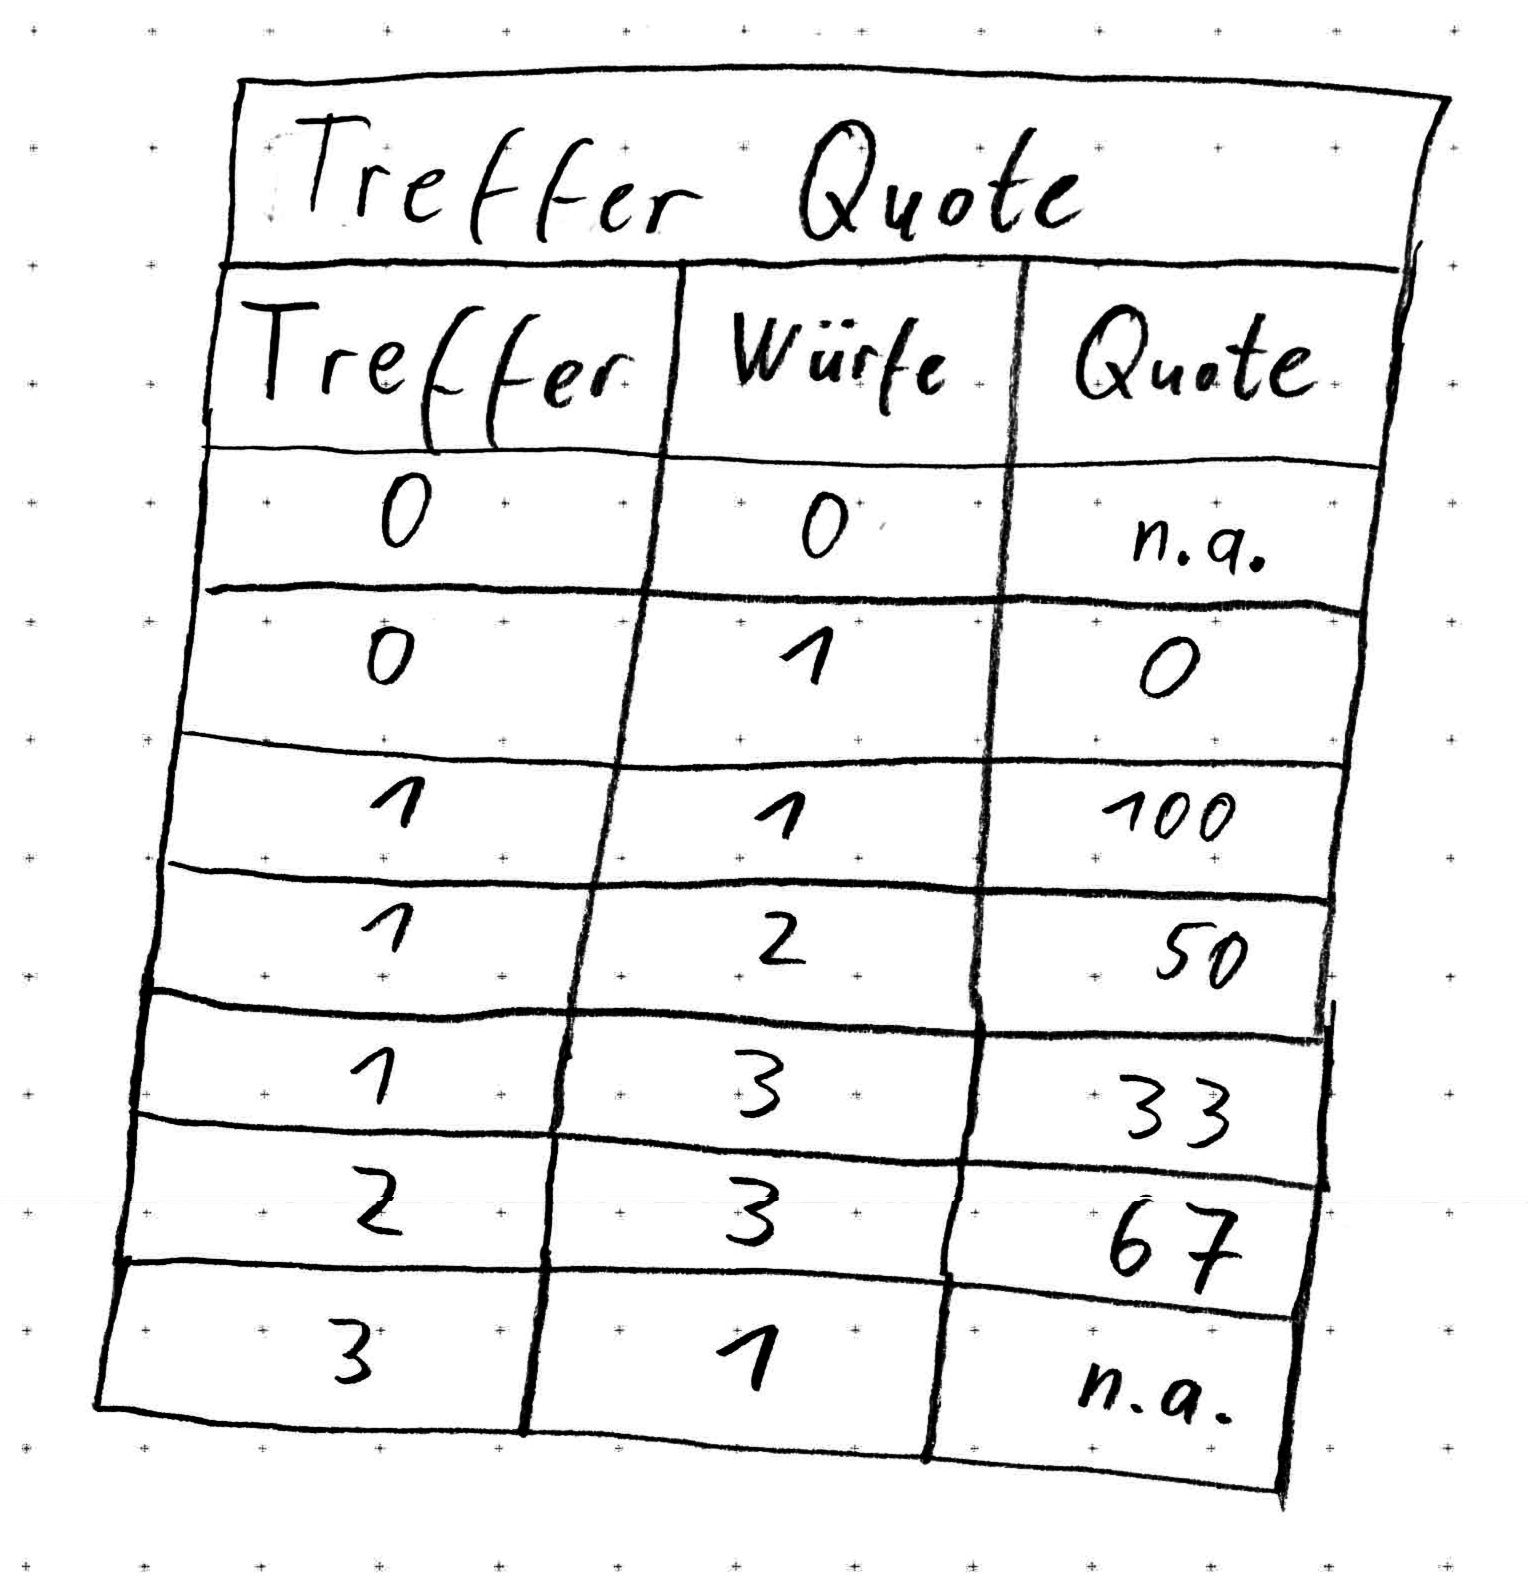 Treffer Quote
Treffer Würfe Quote
0 0 n.a.
0 1 0
1 1 100
1 2 50
1 3 33
2 3 67
3 1 n.a.